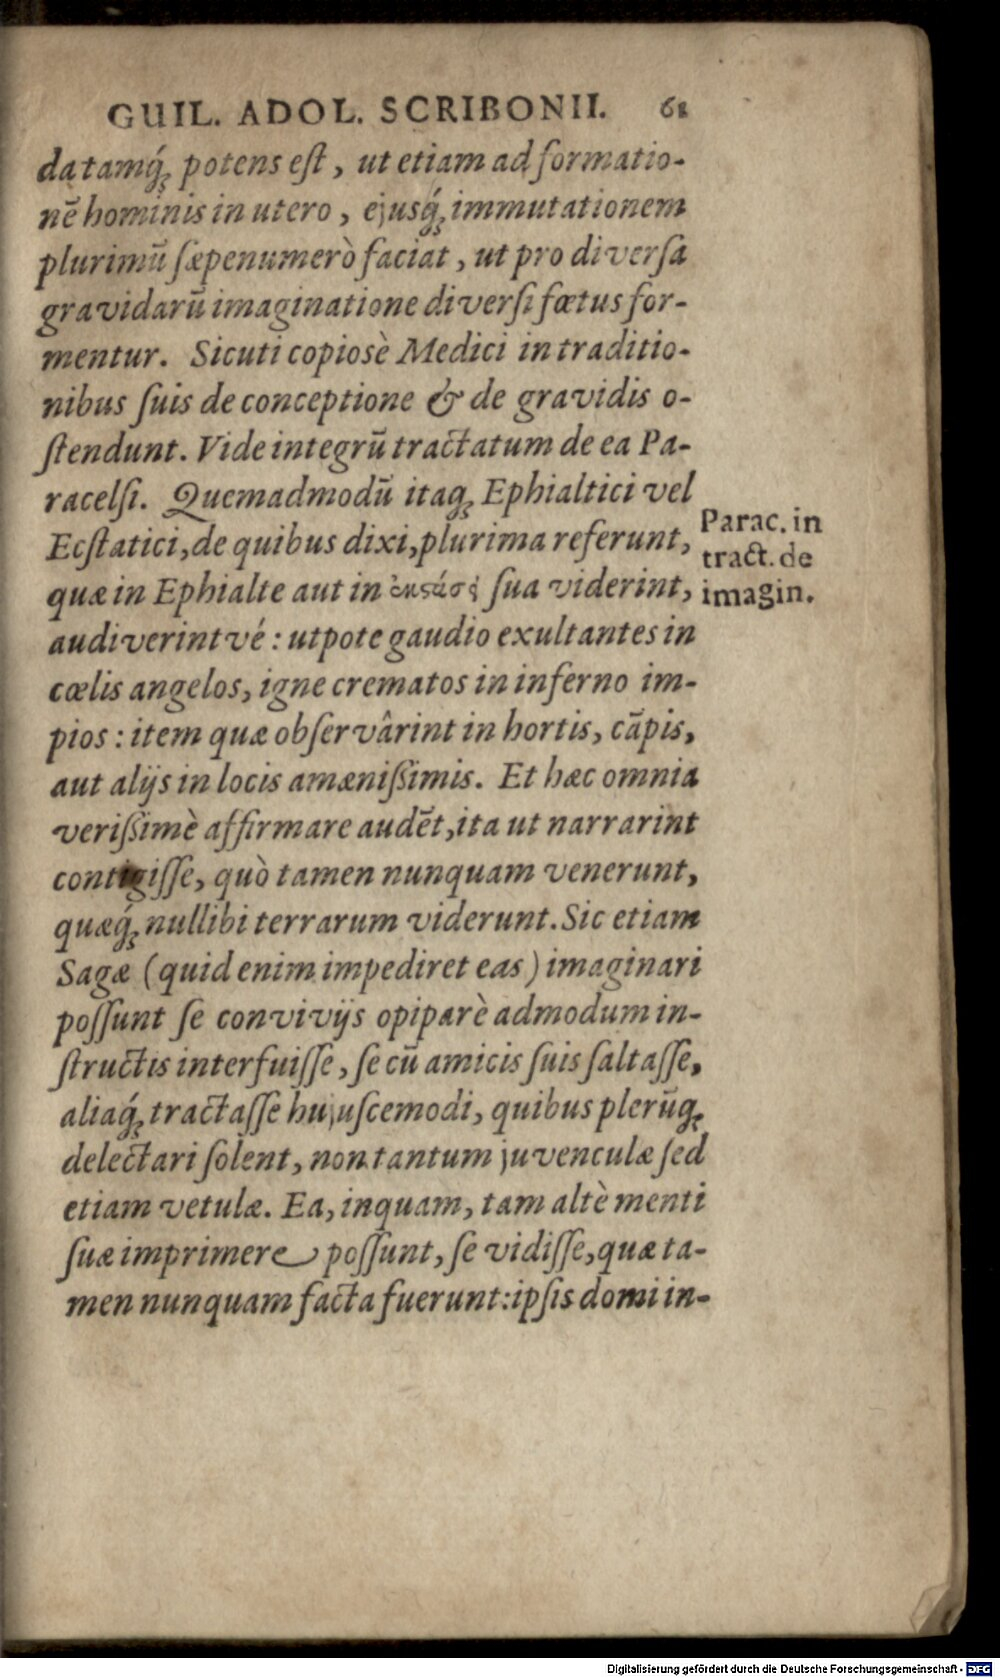 GUIL. ADOL. SCRIBONII. 68
datamq́ꝫ potens eſt, ut etiam ad formatio-
nẽ hominis in utero, ejusq́ꝫ immutationem
plurimũ ſæpenumerò faciat, ut pro diverſa
gravidarũ imaginatione diverſi fœtus for-
mentur. Sicuti copiosè Medici in traditio-
nibus ſuis de conceptione & de gravidis o-
ſtendunt. Vide integrũ tractatum de ea Pa-
racelſi. Quemadmodũ itaqꝫ Ephialtici vel
Ecſtatici, de quibus dixi, plurima referunt,
quæ in Ephialte aut in ἐκϛάσῃ ſua viderint,
audiverintvé: utpote gaudio exultantes in
cœlis angelos, igne crematos in inferno im-
pios: item quæ obſervârint in hortis, cãpis,
aut alijs in locis amæniſſimis. Et hæc omnia
veriſſimè affirmare audẽt, ita ut narrarint
contigiſſe, quò tamen nunquam venerunt,
quæq́ꝫ nullibi terrarum viderunt. Sic etiam
Sagæ (quid enim impediret eas) imaginari
poſſunt ſe convivijs opiparè admodum in-
ſtructis interfuiſſe, ſe cũ amicis ſuis ſaltaſſe,
aliaq́ꝫ tractaſſe hujuſcemodi, quibus plerũqꝫ
delectari ſolent, non tantum juvenculæ ſed
etiam vetulæ. Ea, inquam, tam altè menti
ſuæ imprimere poſſunt, ſe vidiſſe, quæ ta-
men nunquam facta fuerunt: ipſis domi in-
Parac. in
tract. de
imagin.
Digitalisierung gefördert durch die Deutsche Forschungsgemeinschaft - DFG